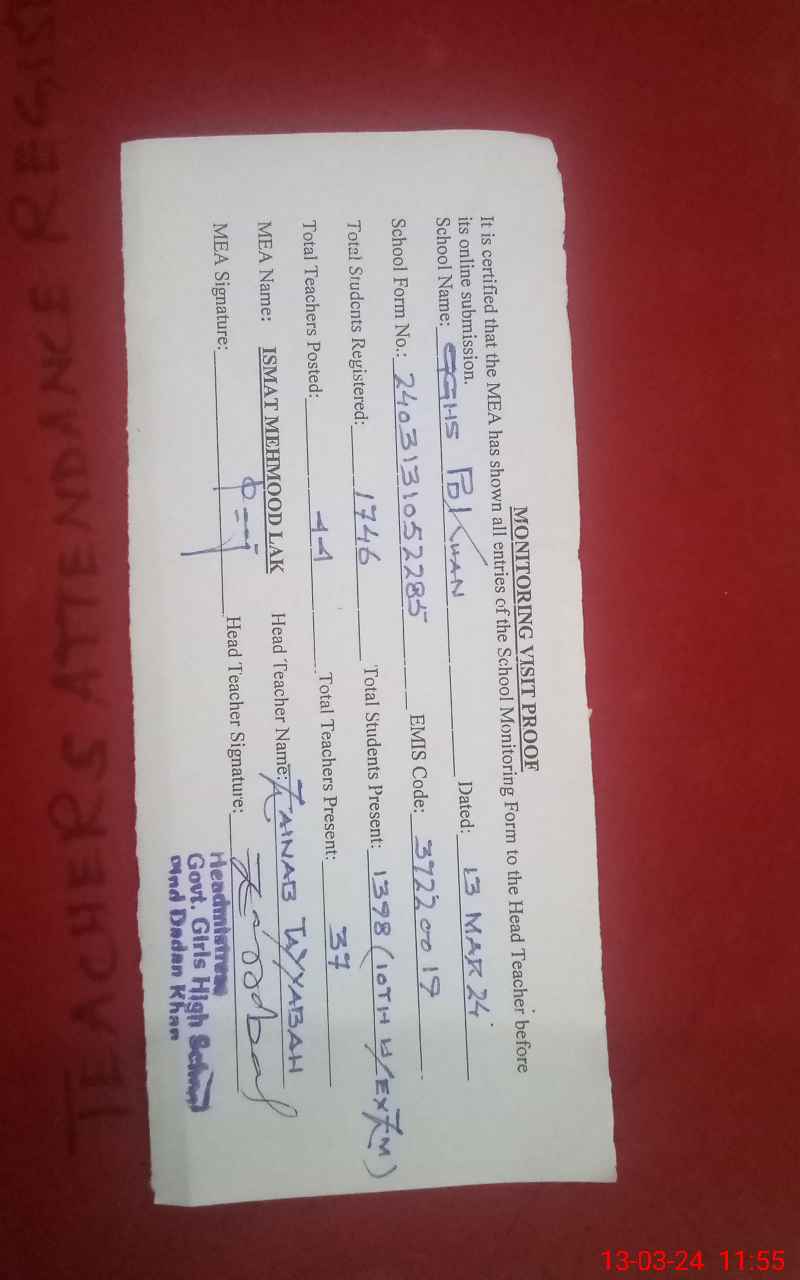 MONITORING VISIT PROOF
It is certified that the MEA has shown all entries of the School Monitoring Form to the Head Teacher before
its online submission.
School Name: GGHS PD KHAN Dated: 13 MAR 24
School Form No.: 2403131052285 EMIS Code: 37220019
Total Students Registered: 1746 Total Students Present: 1398 (10TH U/EXAM)
Total Teachers Posted: 44 Total Teachers Present: 37
MEA Name: ISMAT MEHMOOD LAK Head Teacher Name: ZAINAB TAYYABAH
MEA Signature: Head Teacher Signature:
Headmistress
Govt. Girls High School
Pind Dadan Khan
TEACHERS ATTENDANCE REGIS
13-03-24 11:55